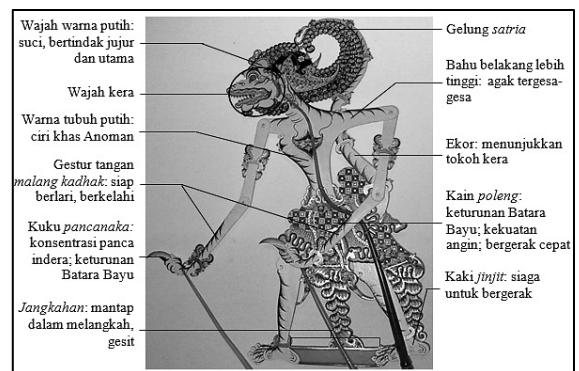 Wajah warna putih:
suci, bertindak jujur
dan utama
Wajah kera
Warna tubuh putih:
ciri khas Anoman
Gestur tangan
malang kadhak: siap
berlari, berkelahi
Kuku pancanaka:
konsentrasi panca
indera; keturunan
Batara Bayu
Jangkahan: mantap
dalam melangkah,
gesit
Gelung satria
Bahu belakang lebih
tinggi: agak tergesa-
gesa
Ekor: menunjukkan
tokoh kera
Kain poleng:
keturunan Batara
Bayu; kekuatan
angin; bergerak cepat
Kaki jinjit: siaga
untuk bergerak